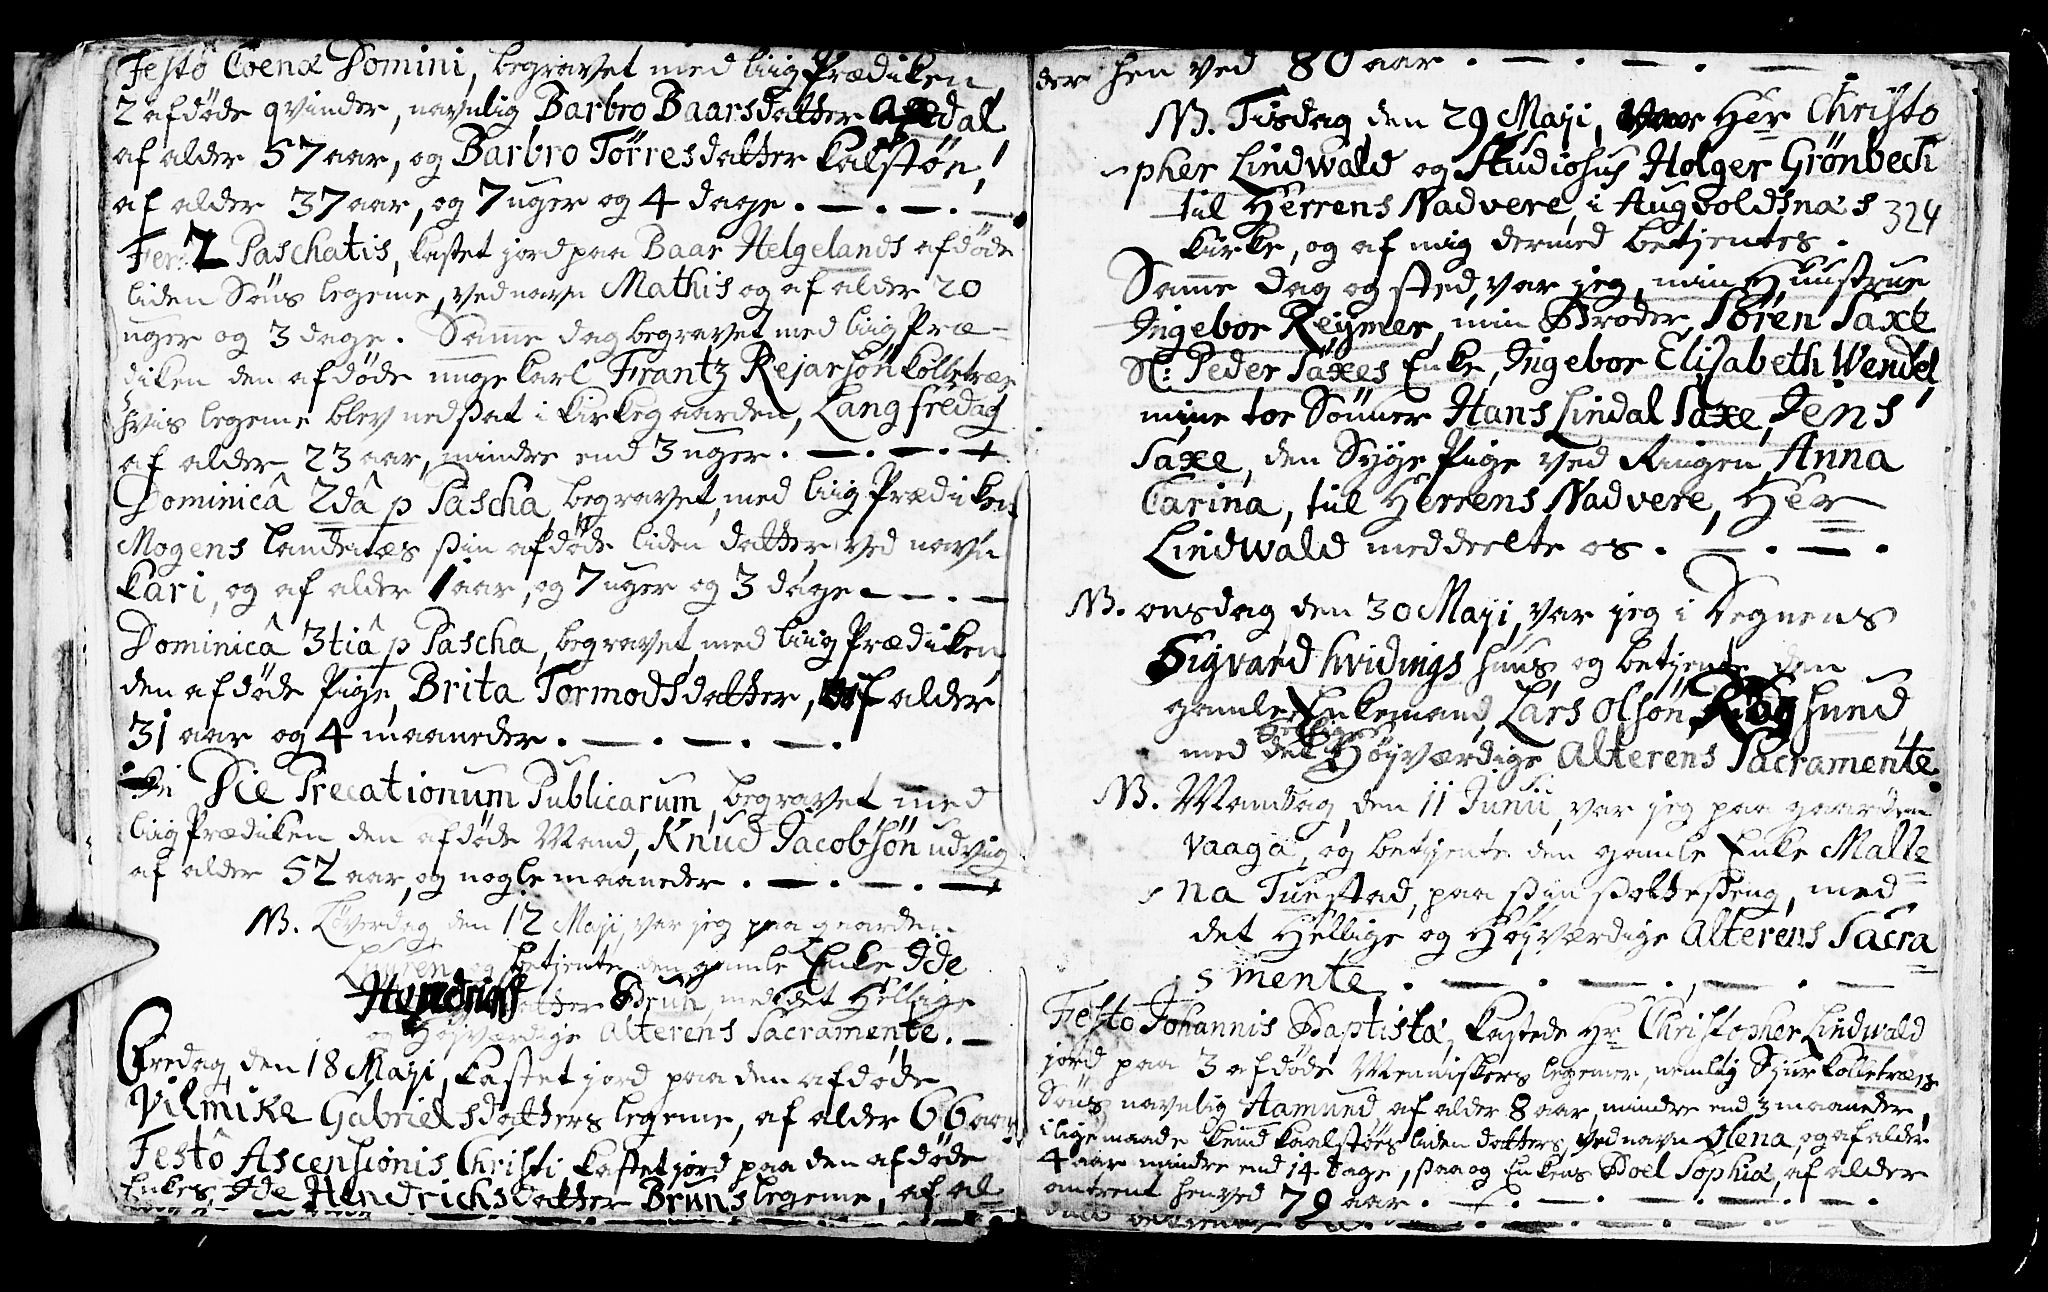 Festo Coenæ Domini, begravet med liig Prædiken
2 afdøde qvinder, navnlig Barbro Baarsdatter
af alder 57 aar, og Barbro Törresdatter Kalstøn,
af alder 37 aar, og 7 uger og 4 dage. —. —. —
Fer: 2 Paschatis, kastet jord paa Baar Helgelands afdøde
liden Søns legeme, ved navn Mathis og af alder 20
uger og 3 dage. Samme dag begravet med liig Præ-
diken den afdøde unge karl Frantz Rejarsön Kolletvær
hvis legeme blev nedsat i kirkegaarden, Langfredag
af alder 23 aar, mindre end 3 uger. —. —. +
Dominicâ 2dâ p Pascha, begravet, med liig Prædiken
Mogens Landenæs sin afdøde liden datter, ved navn
Kari, og af alder 1 aar, og 7 uger og 3 dage —. —
Dominicâ 3tiâ p Pascha, begravet, med liig Prædiken
den afdøde Pige, Brita Tormodsdatter, af alder
31 aar og 4 maaneder. —. —. —.
Die Precationum Publicarum, begravet med
liig Prædiken, den afdøde Mand, Knud Jacobsön udvig
af alder 52 aar, og nogle maaneder. —. —. —
NB. Löverdag, den 12 Maji, var jeg paa gaarden
og betjente den gamle Enke Ide
Hendrichsdatter Brun, med det Hellige
og Højværdige Alterens Sacramente. —
Fredag, den 18 Maji, kastet jord paa den afdøde
Vilmike Gabrielsdatters legeme, af alder 66 aar
Festô Ascensionis Christi kastet jord paa den afdøde
Enkes, Ide Hendrichsdatter Bruns legeme, af al
der hen ved 80 aar. —. —. —.
NB. Tisdag, den 29 Maji, var Her Christo
pher Lindwald og Studiosus Holger Grönbech
til Herrens Nadvere, i Augvoldsnæs
324
kirke, og af mig dermed betjentes.
Samme dag og sted, var jeg, min Huustrue
Ingebor Reymer, min Broder, Sören Saxe
Sl: Peder Saxes Enke, Ingebor Elisabeth Wendel,
mine toe Sönner Hans Lindal Saxe, Jens
Saxe, den Syge Pige ved Ringen, Anna
Carina, til Herrens Nadvere, Her
Lindwald meddeelte os. —. —.
NB. onsdag, den 30 Maji, var jeg i Degnens
Sigvard Hvidings huus, og betjente den
gamle Enkemand, Lars Olsön
Hellige
med det Højværdige Alterens Sacramente.
NB. Mandag, den 11 Junii, var jeg paa gaarden
Vaaga, og betjente den gamle Enke Malle
na Tuestad, paa sin sotteseng, med
det Hellige og Højværdige Alterens Sacra
mente. —. —. —. —
Festo Johannis Baptistæ, kastede Hr Christopher Lindwald
jord paa 3 afdøde Menniskers legemer, nemlig Sjur Kolletvæds
Søns navnlig Aamund, af alder 8 aar, mindre end 3 maaneder,
lige maade Knud Kaalstöes liden datters, ved navn Olena, og af alder
4 aar mindre end 14 dage, saa og Enkens Boel Sophiæ, af alder
omtrent henved 79 aar. —. —. —. —. —. —.